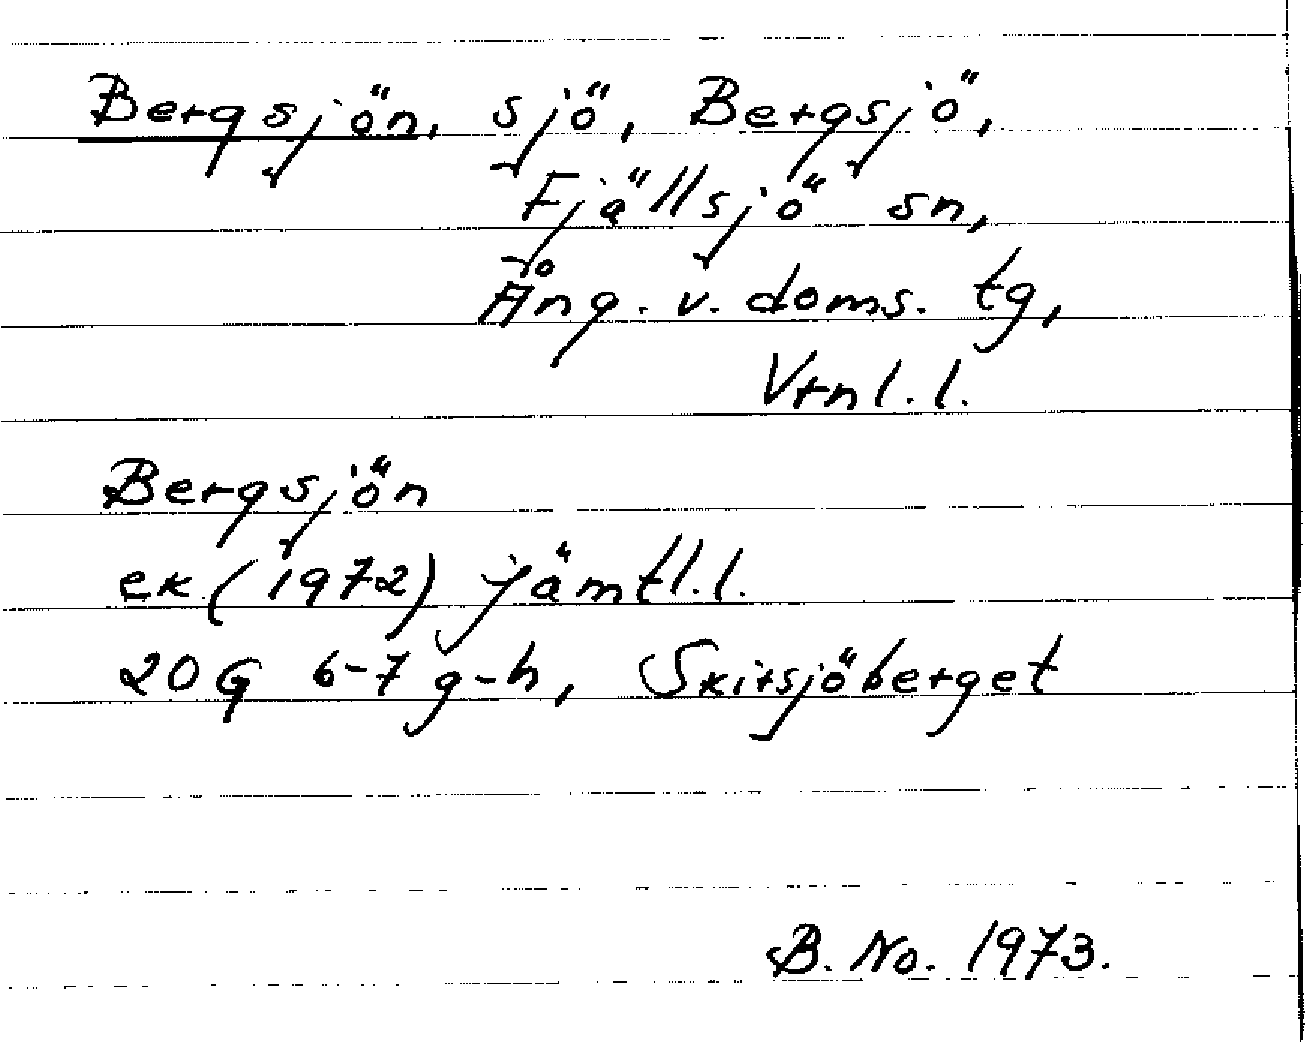 Bergsjön, sjö, Bergsjö,
Fjällsjö sn,
Ång. v. doms. tg,
Vrnl. l.
Bergsjön
ek (1972) Jämtl. l.
20 G 6-7 g-h, Skirsjöberget
B. No. 1973.